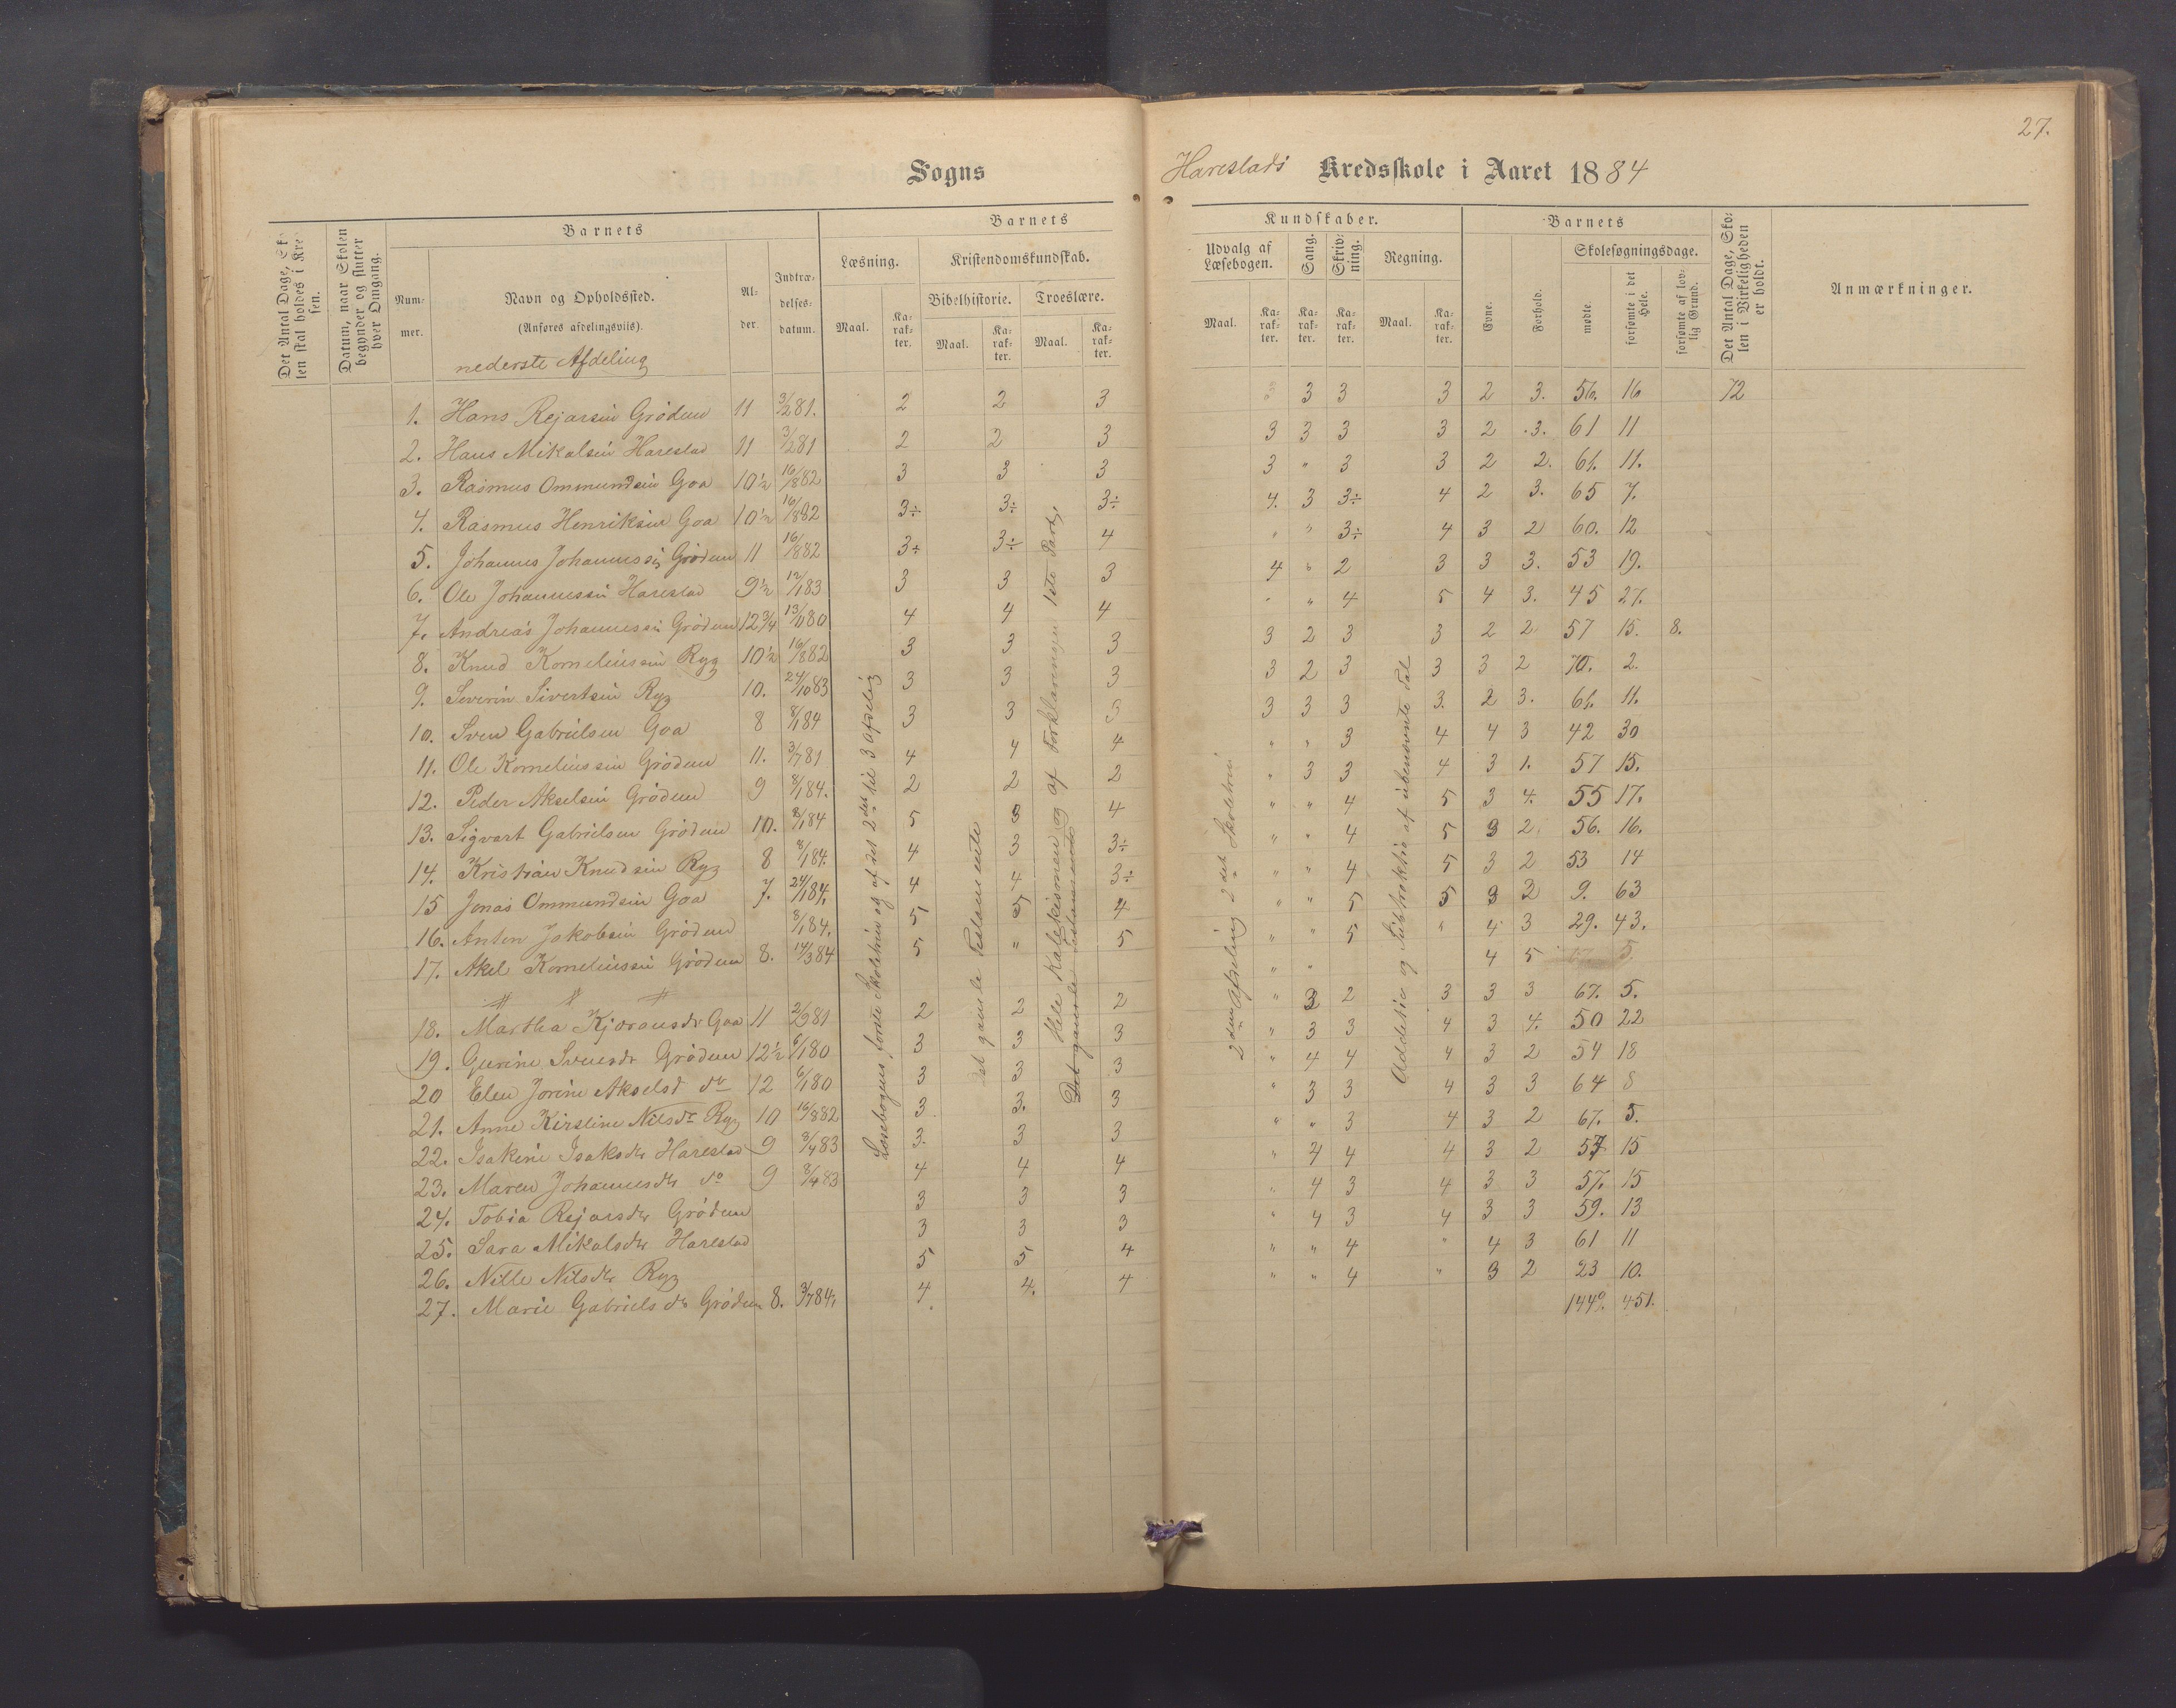 27.
Sogns Harestads Kredsskole i Aaret 1884
Det Antal Dage, Skolen skal holdes i Kredsen.
Datum, naar Skolen begynder og slutter hver Omgang.
Barnets
Num-mer.
Navn og Opholdssted.
(Anføres afdelingsviis).
nederste Afdeling
Al-der.
Indtræ-delses-datum.
Barnets
Læsning.
Maal.
Ka-rak-ter.
Kristendomskundskab.
Bibelhistorie.
Maal.
Ka-rak-ter.
Troeslære.
Maal.
Ka-rak-ter.
Kundskaber.
Udvalg af Læsebogen.
Maal.
Ka-rak-ter.
Sang.
Ka-rak-ter.
Skriv-ning.
Ka-rak-ter.
Regning.
Maal.
Ka-rak-ter.
Barnets
Evne.
Forhold.
Skolesøgningsdage.
mødte.
forsømte i det Hele.
forsømte af lov-lig Grund.
Det Antal Dage, Sko-len i Virkeligheden er holdt.
Anmærkninger.
1. Hans Rejarsen Grødem 11 3/2 81. 2 2 3 3 3 3 3 2 3. 56. 16 72
2. Hans Mikalsen Harestad 11 3/2 81 2 2 3 3 3 3 3 2 3. 61 11
3. Rasmus Ommundsen Goa 10½ 16/8 82 3 3 3 3 " 3 3 2 2. 61. 11.
4. Rasmus Henriksen Goa 10½ 16/8 82 3÷ 3÷ 3÷ 4. 3 3÷ 4 2 3. 65 7.
5. Johannes Johannessen Grødem 11 16/8 82 3÷ 3÷ 4 " " 3÷ 4 3 2 60. 12
6. Ole Johannessen Harestad 9½ 12/1 83 3 3 3 4 " 2 3 3 3. 53 19.
7. Andreas Johannessen Grødem 12¾ 13/10 80 4 4 4 " " 4 5 4 3. 45 27.
8. Knud Korneliussen Ryg 10½ 16/8 82 3 3 3 3 2 3 3 2 2 57 15. 8.
9. Severin Sivertsen Ryg 10. 24/10 83 3 3 3 3 2 3 3 3 2 70. 2.
10. Sven Gabrielsen Goa 8 8/1 84 3 3 3 3 3 3 3. 2 3. 61. 11.
11. Ole Korneliussen Grødem 11. 3/7 81 4 4 4 " " 3 4 4 3 42 30
12. Peder Akselsen Grødem 9 8/1 84. 2 2 2 " 3 3 4 3 1. 57 15.
13. Sigvart Gabrielsen Grødem 10. 8/1 84 5 3 4 " " 4 5 3 4. 55 17.
14. Kristian Knudsen Ryg 8 8/1 84. 4 3 3÷ " " 4 5 3 2. 56. 16.
15 Jonas Ommundsen Goa 7. 24/1 84. 4 4 3÷ " " 4 5 3 2 53 14
16. Anton Jakobsen Grødem 8/1 84. 5 5 4 " " 5 5 3 2 9. 63
17. Akel Korneliussen Grødem 8. 14/3 84 5 " 5 " " 5 " 4 3 29. 43.
4 5
18. Martha Kjoransdr Goa 11 2/9 81 2 2 2 " 3 2 3 3 3 67. 5.
19. Gurine Svensdr Grødem 12½ 6/1 80 3 3 3 " 3 3 4 3 4. 50 22
20 Elen Jorine Akselsd do 12 6/1 80 3 3 3 " 4 4 4 3 2 54 18
21. Anne Kirstine Nilsdr Ryg 10 16/8 82 3 3. 3 " 3 3 4 3 3 64 8
22. Isakine Isaksdtr Harestad 9 8/4 83 3. 3 3 " " 3 4 3 2 67. 5.
23. Maren Johannesdtr do 9 8/4 83 4 4 4 " 4 4 4 3 2 57 15
24. Tobia Rejarsdtr Grødem 3 3 3 " 4 3 4 3 3 57. 15
25. Sara Mikalsdtr Harestad 3 3 3 " 4 3 4 3 3 59. 13
26. Nille Nilsdtr Ryg 5 5 4 " " 4 " 4 3 61 11
27. Marie Gabrielsdr Grødem 8. 3/7 84. 4. 4. 4 " " 4 " 3 2 23 10.
1449. 451.
Læsebogens første Skoletrin og af det 2det til 3 Afsnit
Det gamle Testamente
Hele Katekismen og af Forklaringen 1ste Part.
Det gamle Testamente
2den Afdeling 2det Skoletrin
Addetio og Subtraktio af ubenævnte Tal